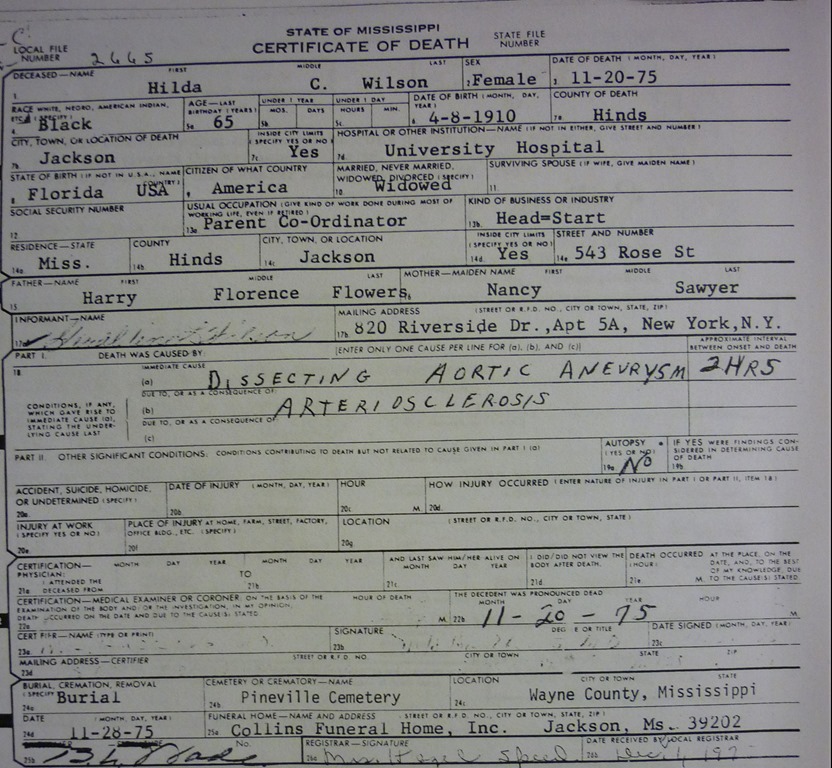 STATE OF MISSISSIPPI
CERTIFICATE OF DEATH
STATE FILE NUMBER
LOCAL FILE NUMBER 2665
DECEASED—NAME FIRST MIDDLE LAST SEX DATE OF DEATH (MONTH, DAY, YEAR)
1. Hilda C. Wilson 2. Female 3. 11-20-75
RACE WHITE, NEGRO, AMERICAN INDIAN, ETC. (SPECIFY) AGE—LAST BIRTHDAY (YEARS) UNDER 1 YEAR MOS. DAYS UNDER 1 DAY HOURS MIN. DATE OF BIRTH (MONTH, DAY, YEAR) COUNTY OF DEATH
4. Black 5a 65 5b 5c 6. 4-8-1910 7a Hinds
CITY, TOWN, OR LOCATION OF DEATH INSIDE CITY LIMITS (SPECIFY YES OR NO) HOSPITAL OR OTHER INSTITUTION—NAME (IF NOT IN EITHER, GIVE STREET AND NUMBER)
7b Jackson 7c Yes 7d University Hospital
STATE OF BIRTH (IF NOT IN U.S.A., NAME COUNTRY) CITIZEN OF WHAT COUNTRY MARRIED, NEVER MARRIED, WIDOWED, DIVORCED (SPECIFY) SURVIVING SPOUSE (IF WIFE, GIVE MAIDEN NAME)
8. Florida USA 9. America 10. Widowed 11.
SOCIAL SECURITY NUMBER USUAL OCCUPATION (GIVE KIND OF WORK DONE DURING MOST OF WORKING LIFE, EVEN IF RETIRED) KIND OF BUSINESS OR INDUSTRY
12 13a Parent Co-Ordinator 13b. Head=Start
RESIDENCE—STATE COUNTY CITY, TOWN, OR LOCATION INSIDE CITY LIMITS (SPECIFY YES OR NO) STREET AND NUMBER
14a. Miss. 14b Hinds 14c Jackson 14d. Yes 14e 543 Rose St
FATHER—NAME FIRST MIDDLE LAST MOTHER—MAIDEN NAME FIRST MIDDLE LAST
15 Harry Florence Flowers Nancy Sawyer
INFORMANT—NAME MAILING ADDRESS (STREET OR R.F.D. NO., CITY OR TOWN, STATE, ZIP)
17a 17b. 820 Riverside Dr.,Apt 5A, New York,N.Y.
PART I. DEATH WAS CAUSED BY: [ENTER ONLY ONE CAUSE PER LINE FOR (a), (b), AND (c)] APPROXIMATE INTERVAL BETWEEN ONSET AND DEATH
18 IMMEDIATE CAUSE
(a) DISSECTING AORTIC ANEURYSM 2 HRS
CONDITIONS, IF ANY, WHICH GAVE RISE TO IMMEDIATE CAUSE (a), STATING THE UNDERLYING CAUSE LAST
DUE TO, OR AS A CONSEQUENCE OF:
(b) ARTERIOSCLEROSIS
DUE TO, OR AS A CONSEQUENCE OF:
(c)
PART II. OTHER SIGNIFICANT CONDITIONS: CONDITIONS CONTRIBUTING TO DEATH BUT NOT RELATED TO CAUSE GIVEN IN PART I (a) AUTOPSY (YES OR NO) IF YES WERE FINDINGS CONSIDERED IN DETERMINING CAUSE OF DEATH
19a No 19b
ACCIDENT, SUICIDE, HOMICIDE, OR UNDETERMINED (SPECIFY) DATE OF INJURY (MONTH, DAY, YEAR) HOUR HOW INJURY OCCURRED (ENTER NATURE OF INJURY IN PART I OR PART II, ITEM 18)
20a. 20b 20c. M. 20d.
INJURY AT WORK (SPECIFY YES OR NO) PLACE OF INJURY AT HOME, FARM, STREET, FACTORY, OFFICE BLDG., ETC. (SPECIFY) LOCATION (STREET OR R.F.D. NO., CITY OR TOWN, STATE)
20e. 20f 20g
CERTIFICATION— MONTH DAY YEAR MONTH DAY YEAR AND LAST SAW HIM/HER ALIVE ON MONTH DAY YEAR I DID/DID NOT VIEW THE BODY AFTER DEATH. DEATH OCCURRED (HOUR) AT THE PLACE, ON THE DATE, AND, TO THE BEST OF MY KNOWLEDGE, DUE TO THE CAUSE(S) STATED.
PHYSICIAN: I ATTENDED THE DECEASED FROM TO
21a 21b 21c 21d 21e M.
CERTIFICATION—MEDICAL EXAMINER OR CORONER: ON THE BASIS OF THE EXAMINATION OF THE BODY AND/OR THE INVESTIGATION, IN MY OPINION, DEATH OCCURRED ON THE DATE AND DUE TO THE CAUSE(S) STATED. HOUR OF DEATH THE DECEDENT WAS PRONOUNCED DEAD MONTH DAY YEAR HOUR
22a M. 22b 11-20-75 M.
CERTIFIER—NAME (TYPE OR PRINT) SIGNATURE DEGREE OR TITLE DATE SIGNED (MONTH, DAY, YEAR)
23a 23b 23c
MAILING ADDRESS—CERTIFIER STREET OR R.F.D. NO. CITY OR TOWN STATE ZIP
23d
BURIAL, CREMATION, REMOVAL (SPECIFY) CEMETERY OR CREMATORY—NAME LOCATION CITY OR TOWN STATE
24a Burial 24b Pineville Cemetery 24c Wayne County, Mississippi
DATE (MONTH, DAY, YEAR) FUNERAL HOME—NAME AND ADDRESS (STREET OR R.F.D. NO., CITY OR TOWN, STATE, ZIP)
24d 11-28-75 25a Collins Funeral Home, Inc. Jackson, Ms. 39202
No. REGISTRAR—SIGNATURE DATE RECEIVED BY LOCAL REGISTRAR
25b 26a 26b Dec. 1, 197